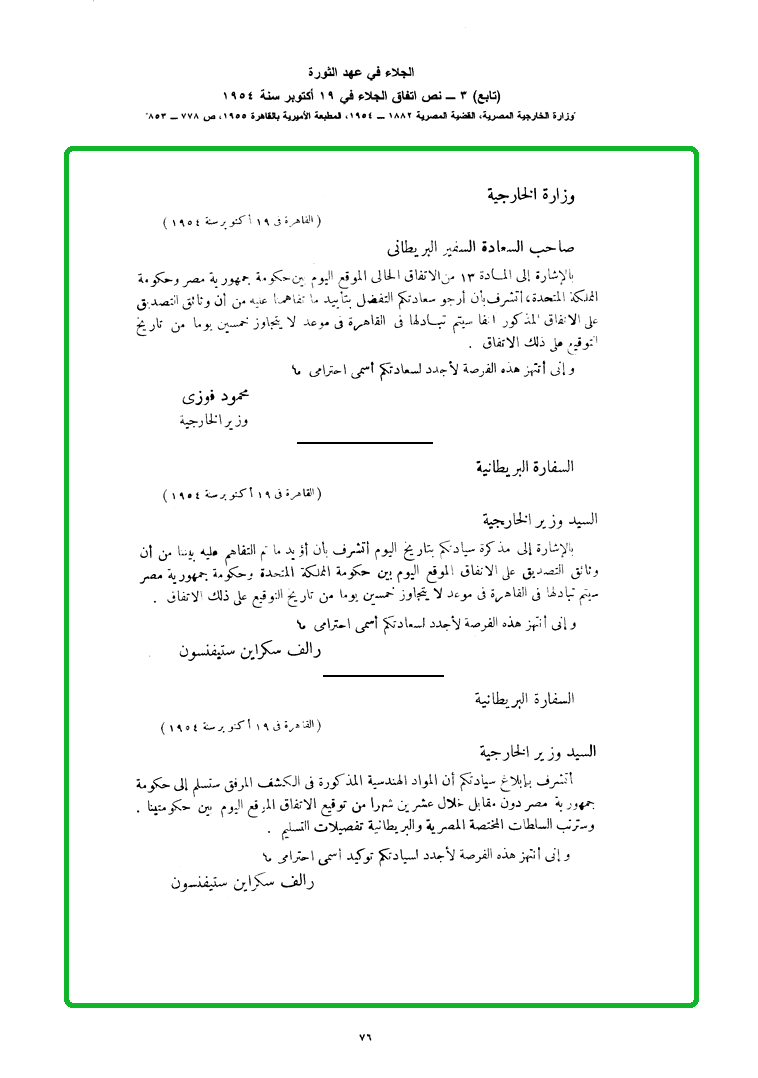 الجلاء في عهد الثورة
(تابع) ٣ ــ نص اتفاق الجلاء في ١٩ أكتوبر سنة ١٩٥٤
وزارة الخارجية المصرية، القضية المصرية ١٨٨٢ ــ ١٩٥٤، المطبعة الأميرية بالقاهرة ١٩٥٥، ص ٧٧٨ ــ ٨٥٣
وزارة الخارجية
( القاهرة فى ١٩ أكتوبر سنة ١٩٥٤ )
صاحب السعادة السفير البريطانى
بالإشارة إلى المادة ١٣ من الاتفاق الحالى الموقع اليوم بين حكومة جمهورية مصر وحكومة
المملكة المتحدة، أتشرف بأن أرجو سعادتكم التفضل بتأييد ما تفاهمنا عليه من أن وثائق التصديق
على الاتفاق المذكور آنفا سيتم تبادلها فى القاهرة فى موعد لا يتجاوز خمسين يوما من تاريخ
التوقيع على ذلك الاتفاق .
و إنى أنتهز هذه الفرصة لأجدد لسعادتكم أسمى احترامى ؞
محمود فوزى
وزير الخارجية
السفارة البريطانية
( القاهرة فى ١٩ أكتوبر سنة ١٩٥٤ )
السيد وزير الخارجية
بالإشارة إلى مذكرة سيادتكم بتاريخ اليوم أتشرف بأن أؤيد ما تم التفاهم عليه بيننا من أن
وثائق التصديق على الاتفاق الموقع اليوم بين حكومة المملكة المتحدة وحكومة جمهورية مصر
سيتم تبادلها فى القاهرة فى موعد لا يتجاوز خمسين يوما من تاريخ التوقيع على ذلك الاتفاق .
و إنى أنتهز هذه الفرصة لأجدد لسعادتكم أسمى احترامى ؞
رالف سكراين ستيفنسون
السفارة البريطانية
( القاهرة فى ١٩ أكتوبر سنة ١٩٥٤ )
السيد وزير الخارجية
أتشرف بإبلاغ سيادتكم أن المواد الهندسية المذكورة فى الكشف المرفق ستسلم إلى حكومة
جمهورية مصر دون مقابل خلال عشرين شهرا من توقيع الاتفاق الموقع اليوم بين حكومتينا .
وسترتب السلطات المختصة المصرية والبريطانية تفصيلات التسليم .
و إنى أنتهز هذه الفرصة لأجدد لسيادتكم توكيد أسمى احترامى ؞
رالف سكراين ستيفنسون
٧٦